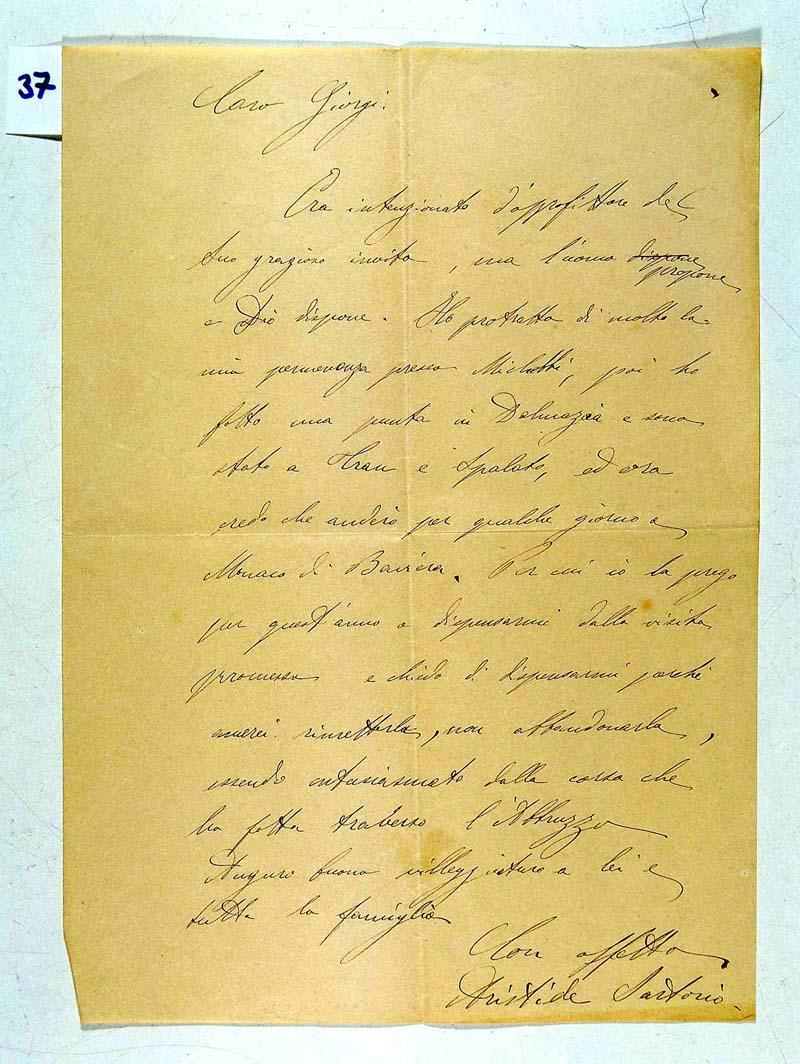 37
Caro Giorgi.
Era intenzionato d'approfittare del
suo grazioso invito, ma l'uomo dispone propone
e Dio dispone. Ho protratta di molto la
mia permanenza presso Michetti, poi ho
fatto una punta in Dalmazia e sono
stato a Trau e Spalato, ed ora
credo che anderò per qualche giorno a
Monaco di Baviera. Per cui io la prego
per quest'anno a dispensarmi dalla visita
promessa e chiedo di dispensarmi perchè
amerei rimetterla, non abbandonarla,
essendo entusiasmato dalla corsa che
ho fatta traverso l'Abbruzzo
Auguro buona villeggiatura a lei e
tutta la famiglia
Con affetto
Aristide Sartorio.